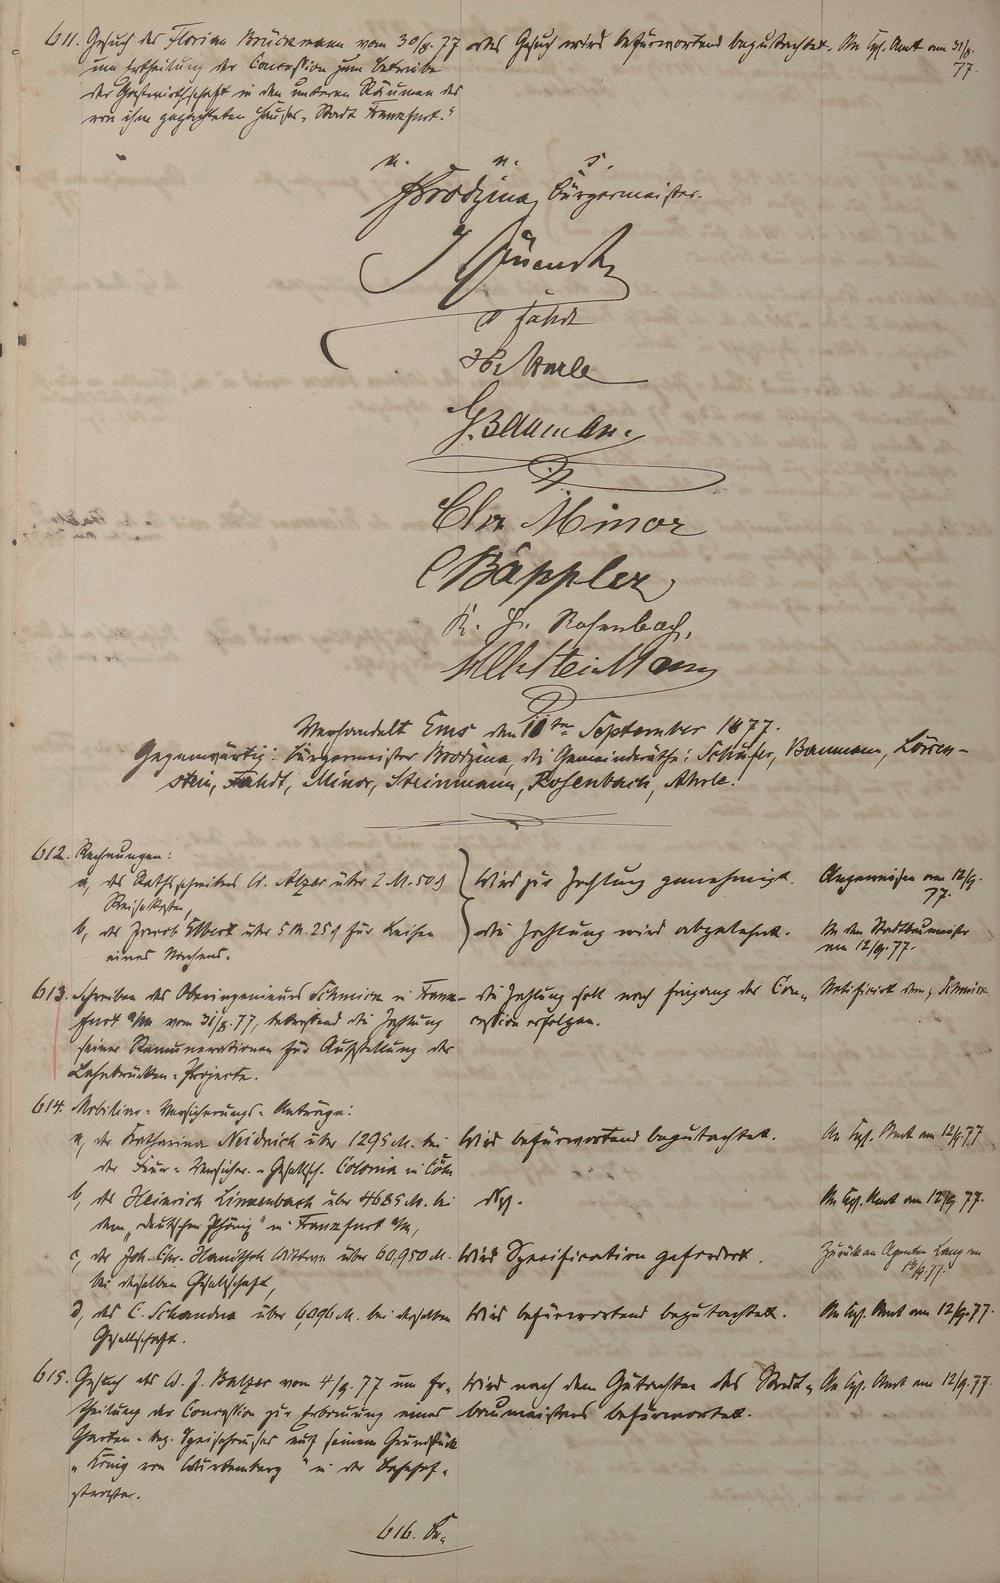 611. Gesuch des Florian Brückmann vom 30/8. 77 das Gesuch wird befürwortend begutachtet. An Kgl. Amt am 31/8. 77.
um Ertheilung der Concession zum Betriebe
der Gastwirthschaft in den unteren Räumen des
von ihm gepachteten Hauses „Stadt Frankfurt."
v. n. s.
Brodzina, Bürgermeister.
Fähdt
G. Bauman.
Chr Minor
Bäppler
K. Rosenbach,
Steinmann
Verhandelt Ems den 11ten September 1877.
Gegenwärtig: Bürgermeister Brodzina, die Gemeinderäthe: Schäfer, Baumann, Löwen-
stein, Fähdt, Minor, Steinmann, Rosenbach,
612. Rechnungen:
a, des Rathsschreibers über 2 M. 50 ₰ wird zur Zahlung genehmigt. Angewiesen am 12/9. 77.
Reisekosten,
b, des Jacob Elbert über 5 M. 25 ₰ für Leihen die Zahlung wird abgelehnt. An den Stadtbaumeister
eines Nachens. am 12/9. 77.
613. Schreiben des Oberingenieurs Schmick in Frank- die Zahlung soll nach Eingang der Con- Notificirt dem p. Schmick
furt a/M vom 31/8. 77, betreffend die Zahlung cession erfolgen.
seiner Remunerationen für Aufstellung der
Lahnbrücken-Projecte.
614. Mobiliar-Versicherungs-Anträge:
a, der Katharina Neidrich über 1295 M. bei wird befürwortend begutachtet. An Kgl. Amt am 12/9. 77
der Feuer-Versicher.-Gesellsch. Colonia in Cöln
b, des Heinrich Linkenbach über 4685 M. bei dsgl. An Kgl. Amt am 12/9 77.
dem „deutschen Phönix" in Frankfurt a/M,
c, der Joh. Chr. Wittwe über 60,950 M. wird Specification gefordert. Zurück an Agenten Lang am
bei derselben Gesellschaft, 12/9. 77.
d, des C. Schandua über 6,096 M. bei derselben wird befürwortend begutachtet. An Kgl. Amt am 12/9. 77.
Gesellschaft.
615. Gesuch des W. J. Balzer vom 4/9. 77 um Er- wird nach dem Gutachten des Stadt- An Kgl. Amt am 12/9. 77.
theilung der Concession zur Erbauung eines baumeisters befürwortet.
Garten- bez. Speisehauses auf seinem Grundstück
„König von Würtemberg" in der Bahnhof-
strasse.
616. Be-